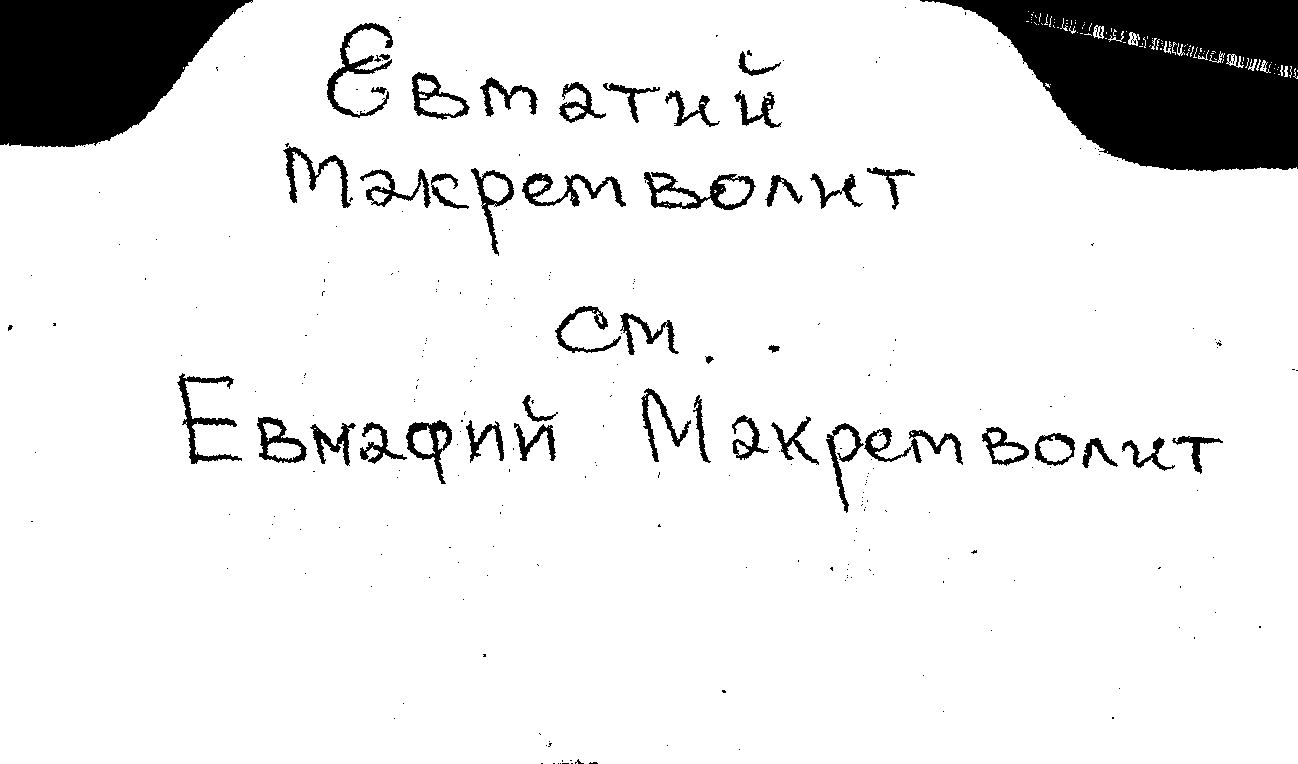 Евматий
Макремволит
см.
Евмафий Макремволит